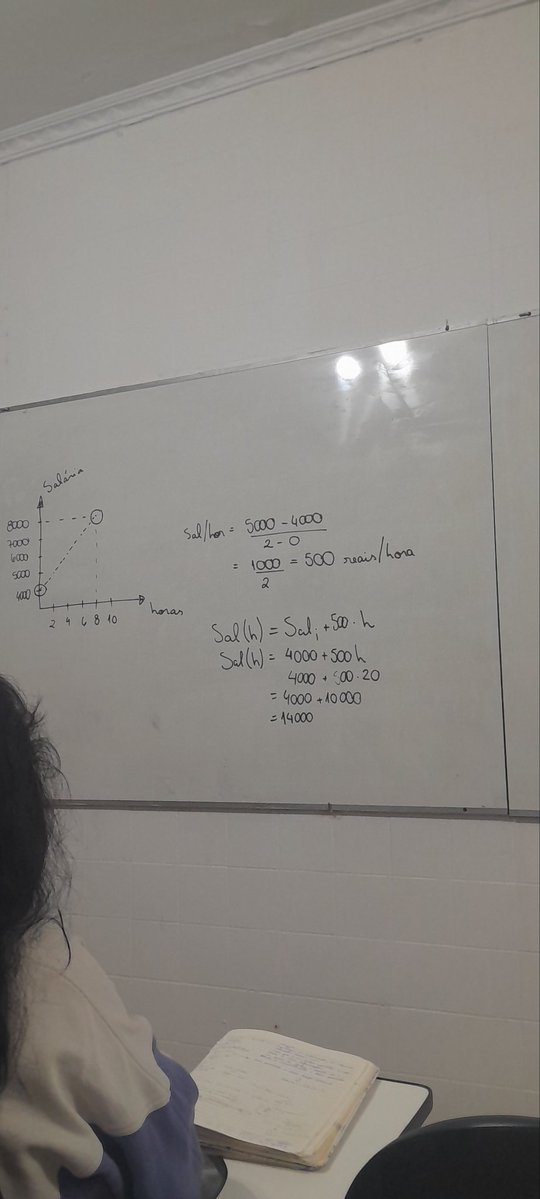 Salário
8000
7000
6000
5000
4000
2 4 6 8 10
horas
Sal/hor = 5000 - 4000
2 - 0
= 1000 = 500 reais/hora
2
Sal(h) = Sali + 500 · h
Sal(h) = 4000 + 500h
4000 + 500 · 20
= 4000 + 10000
= 14000